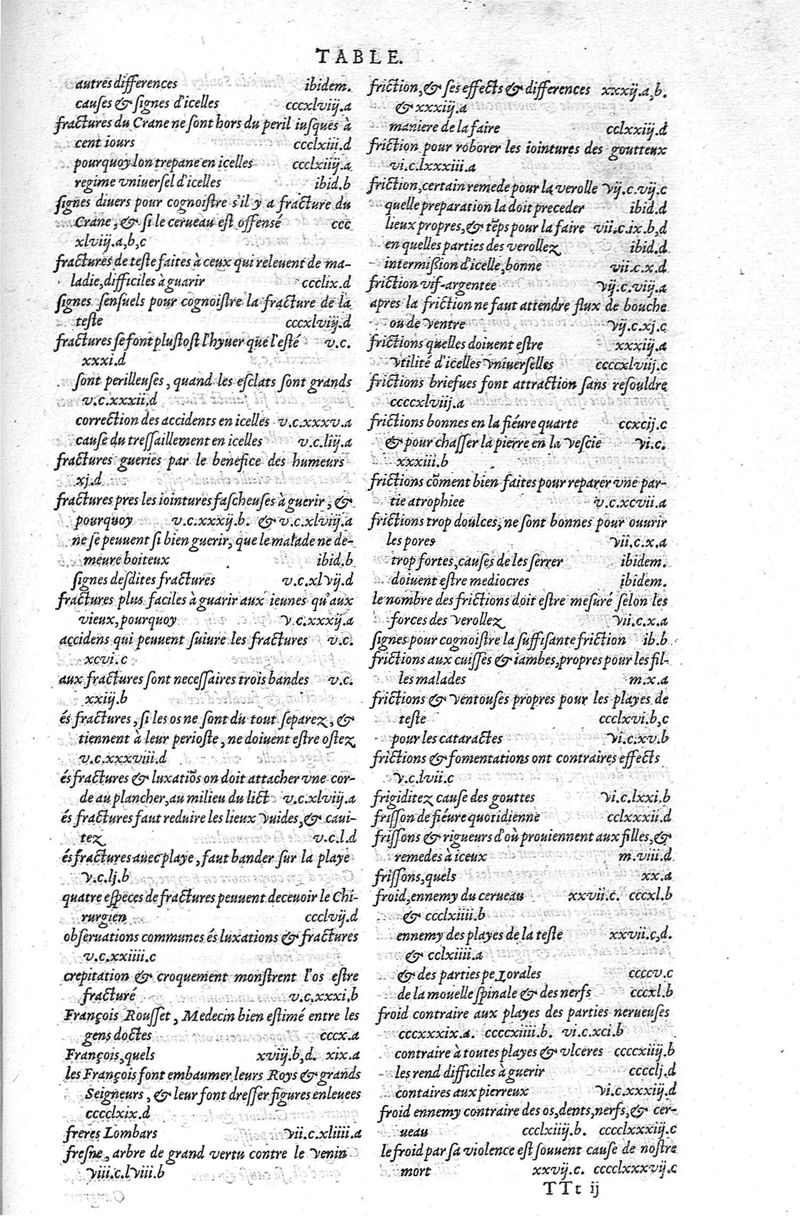 TABLE.
autres differences ibidem.
causes & signes d'icelles cccxlviij.a
fractures du Crane ne sont hors du peril iusques à
cent iours ccclxiii.d
pourquoy lon trepane en icelles ccclxiiij.a
regime vniuersel d'icelles ibid.b
signes diuers pour cognoistre s'il y a fracture du
Crane, & si le cerueau est offensé ccc
xlviij.a,b,c
fractures de teste faites à ceux qui releuent de ma-
ladie, difficiles à guarir ccclix.d
signes sensuels pour cognoistre la fracture de la
teste cccxlviij.d
fractures se font plustost l'hyuer que l'esté v.c.
xxxi.d
sont perilleuses, quand les esclats sont grands
v.c.xxxii.d
correction des accidents en icelles v.c.xxxv.a
cause du tressaillement en icelles v.c.liij.a
fractures gueries par le benefice des humeurs
xj.d
fractures pres les iointures fascheuses à guerir, &
pourquoy v.c.xxxij.b. & v.c.xlviij.a
ne se peuuent si bien guerir, que le malade ne de-
meure boiteux ibid.b
signes desdites fractures v.c.xlvij.d
fractures plus faciles à guarir aux ieunes qu'aux
vieux, pourquoy v.c.xxxij.a
accidens qui peuuent suiure les fractures v.c.
xcvi.c
aux fractures sont necessaires trois bandes v.c.
xxiij.b
és fractures, si les os ne sont du tout separez, &
tiennent à leur perioste, ne doiuent estre ostez
v.c.xxxviii.d
és fractures & luxatiõs on doit attacher vne cor-
de au plancher, au milieu du lict v.c.xlviij.a
és fractures faut reduire les lieux vuides, & caui-
tez v.c.l.d
és fractures auec playe, faut bander sur la playe
v.c.lj.b
quatre especes de fractures peuuent deceuoir le Chi-
rurgien ccclvij.d
obseruations communes és luxations & fractures
v.c.xxiiii.c
crepitation & croquement monstrent l'os estre
fracturé v.c.xxxi.b
François Rousset, Medecin bien estimé entre les
gens doctes cccx.a
François, quels xviij.b,d. xix.a
les François font embaumer leurs Roys & grands
Seigneurs, & leur font dresser figures enleuees
cccclxix.d
freres Lombars vii.c.xliiii.a
fresne, arbre de grand vertu contre le venin
viii.c.lviii.b
friction, & ses effects & differences xxxij.a,b.
& xxxiij.a
maniere de la faire cclxxiij.d
friction pour roborer les iointures des goutteux
vi.c.lxxxiii.a
friction, certain remede pour la verolle vij.c.vij.c
quelle preparation la doit preceder ibid.d
lieux propres, & tẽps pour la faire vii.c.ix.b,d
en quelles parties des verollez ibid.d
intermission d'icelle, bonne vii.c.x.d
friction vif-argentee vij.c.viij.a
apres la friction ne faut attendre flux de bouche
ou de ventre vij.c.xj.c
frictions quelles doiuent estre xxxiij.a
vtilité d'icelles vniuerselles ccccxlviij.c
frictions briefues font attraction sans resouldre
ccccxlviij.a
frictions bonnes en la fiéure quarte ccxcij.c
& pour chasser la pierre en la vescie vi.c.
xxxiii.b
frictions cõment bien faites pour reparer vne par-
tie atrophiee v.c.xcvii.a
frictions trop doulces, ne sont bonnes pour ouurir
les pores vii.c.x.a
trop fortes, causes de les serrer ibidem.
doiuent estre mediocres ibidem.
le nombre des frictions doit estre mesuré selon les
forces des verollez vii.c.x.a
signes pour cognoistre la suffisante friction ib.b
frictions aux cuisses & iambes, propres pour les fil-
les malades m.x.a
frictions & ventouses propres pour les playes de
teste ccclxvi.b,c
pour les cataractes vi.c.xv.b
frictions & fomentations ont contraires effects
v.c.lvii.c
frigiditez cause des gouttes vi.c.lxxi.b
frisson de fiéure quotidienne cclxxxii.d
frissons & rigueurs d'où prouiennent aux filles, &
remedes à iceux m.viii.d
frissons, quels xx.a
froid, ennemy du cerueau xxvii.c. cccxl.b
& ccclxiiii.b
ennemy des playes de la teste xxvii,c,d.
& cclxiiii.a
& des parties pectorales ccccv.c
de la mouelle spinale & des nerfs cccxl.b
froid contraire aux playes des parties nerueuses
cccxxxix.a. ccccxiiii.b. vi.c.xci.b
contraire à toutes playes & vlceres ccccxiij.b
les rend difficiles à guerir cccclj.d
contaires aux pierreux vi.c.xxxiij.d
froid ennemy contraire des os, dents, nerfs, & cer-
ueau ccclxiij.b. ccclxxxiij.c
le froid par sa violence est souuent cause de nostre
mort xxvij.c. cccclxxxvij.c
TTt ij